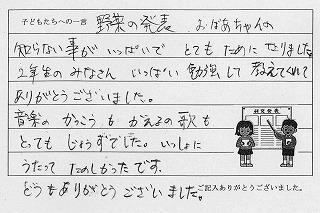 子どもたちへの一言 野菜の発表 おばあちゃんの
知らない事が いっぱいで とても ために なりました。
2年生の みなさん いっぱい 勉強して 教えてくれて
ありがとうございました。
音楽の かっこう も かえるの 歌も
とっても じょうずでした。いっしょに
うたって たのしかったです。
どうも ありがとう ございました。
研究発表
ご記入ありがとうございました。